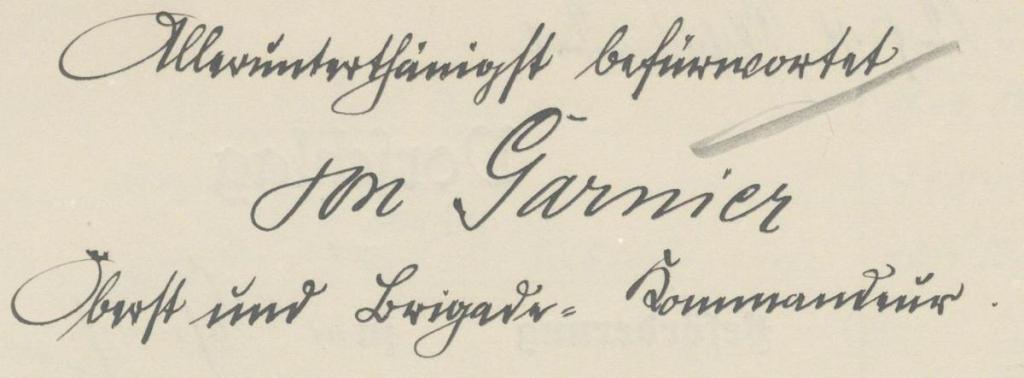 Allerunterthänigst befürwortet
von Garnier
Oberst und Brigade-Kommandeur.